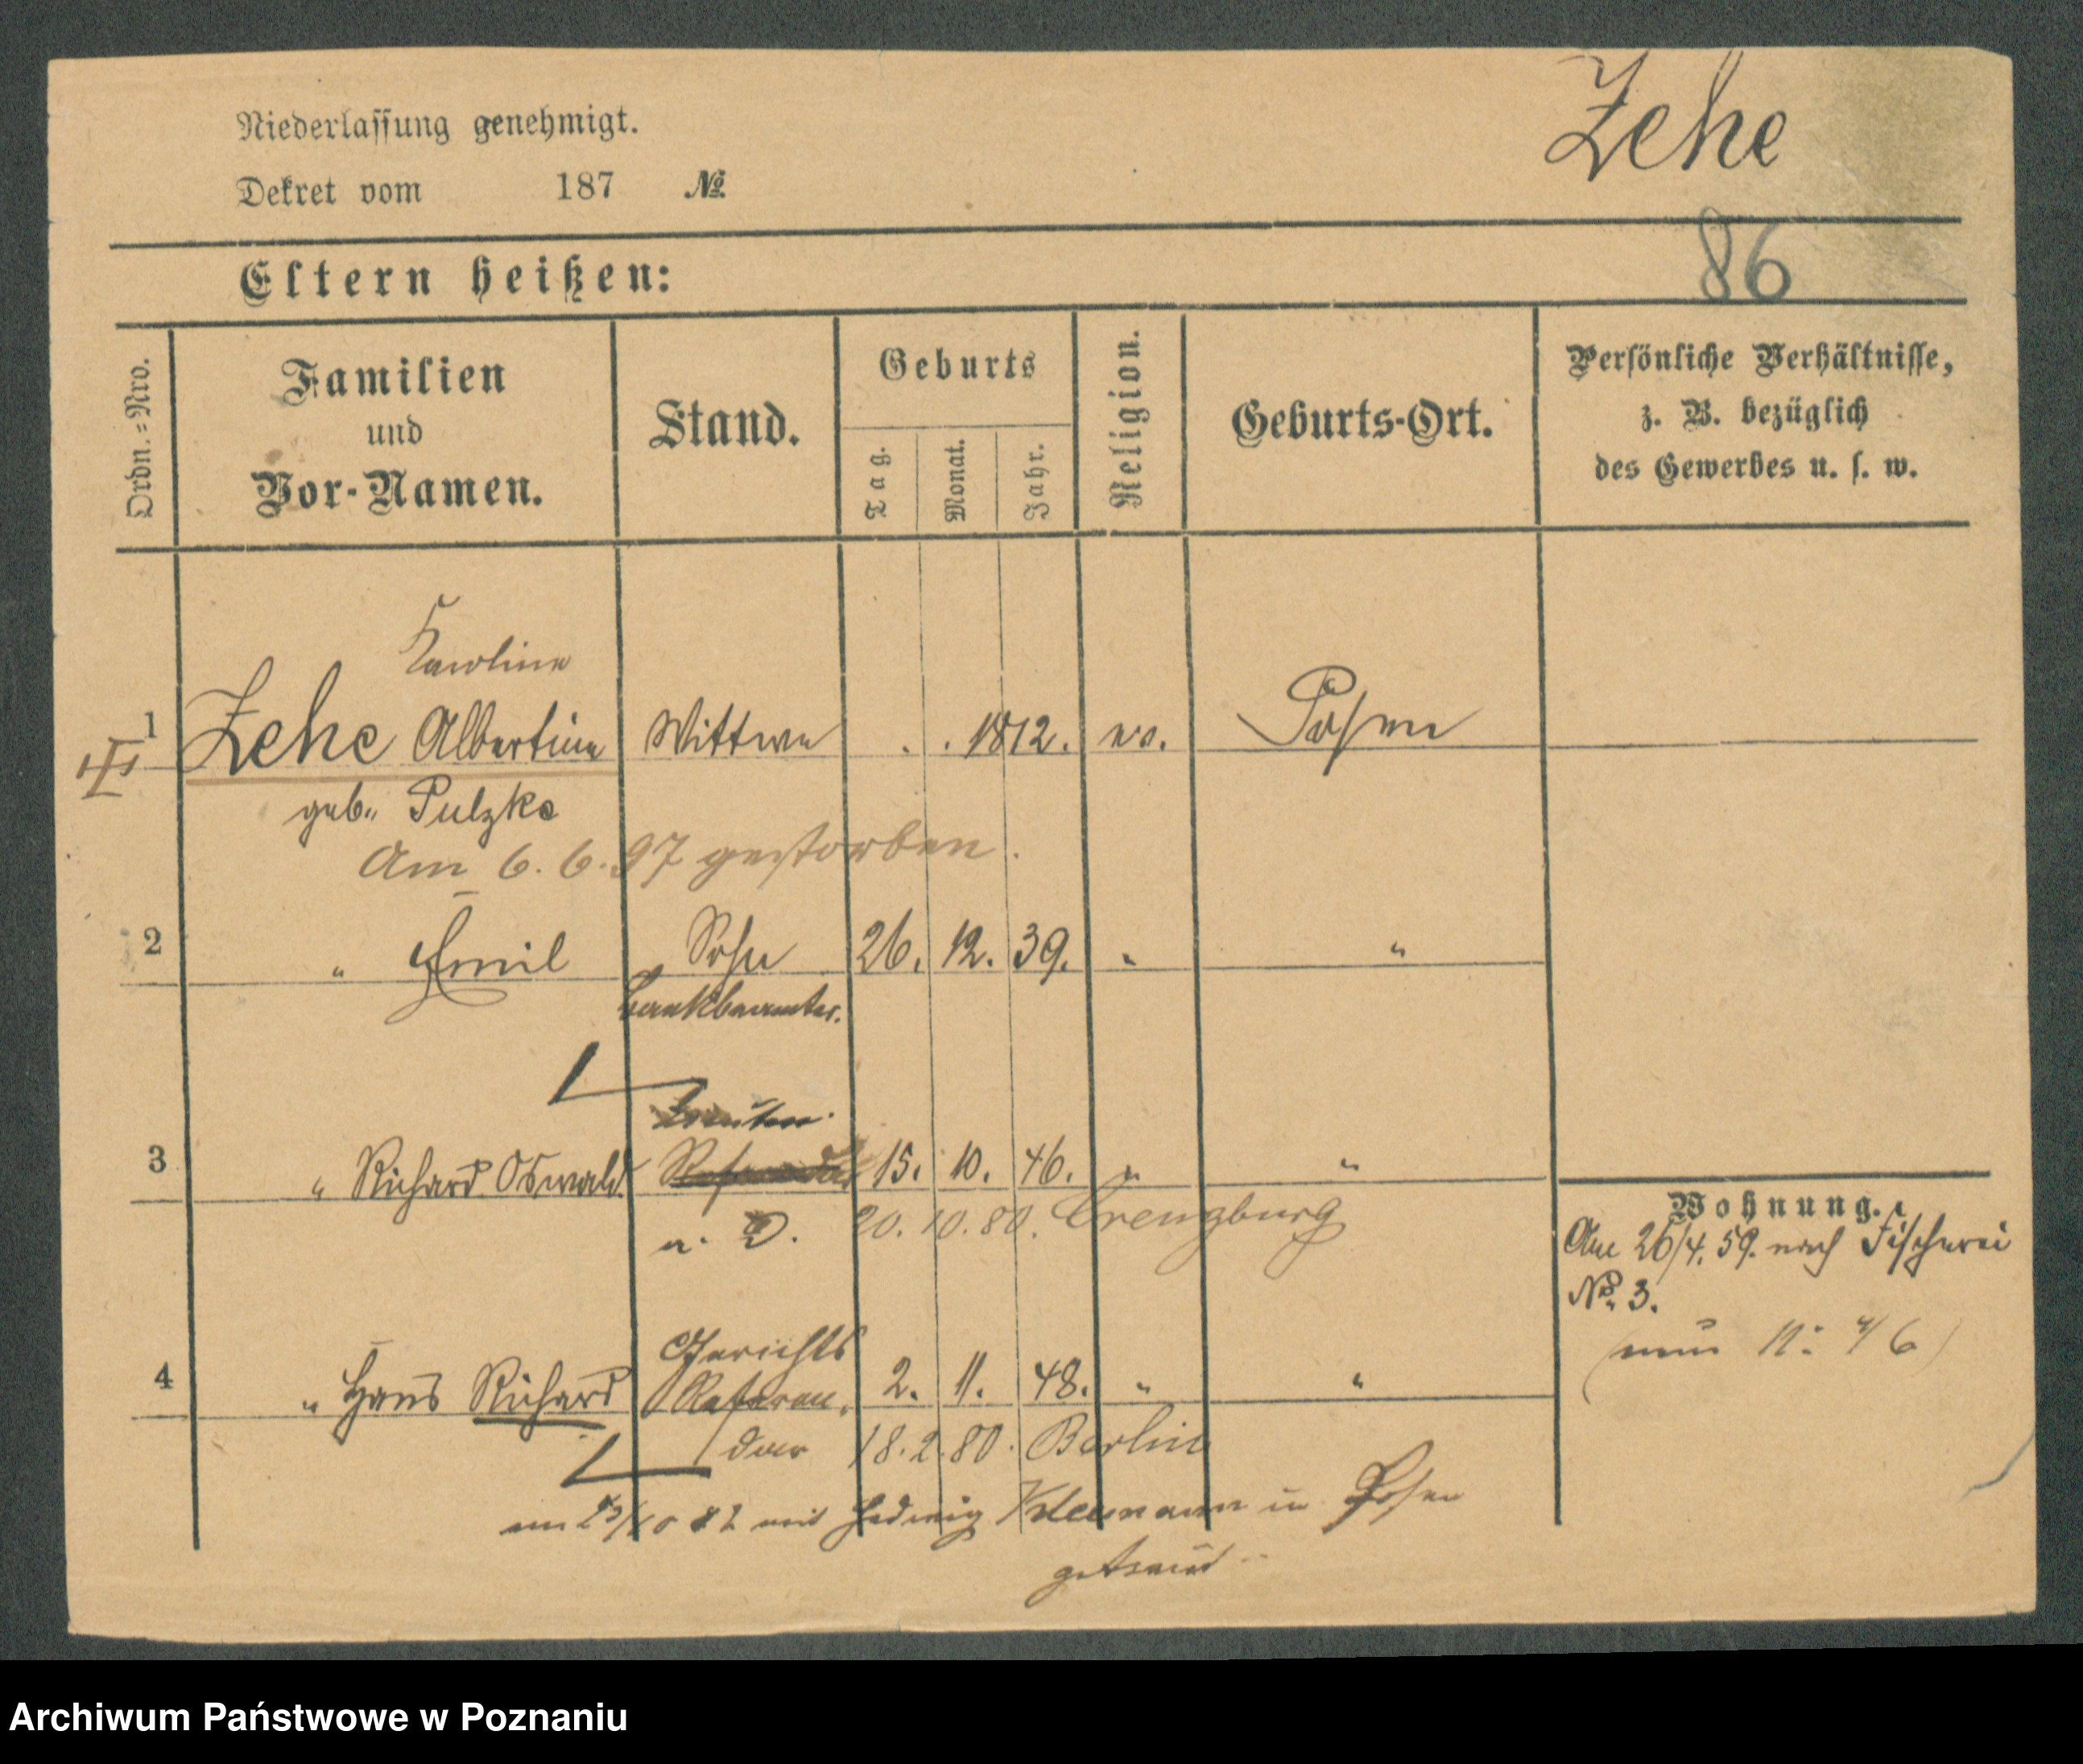 Zehe
Niederlassung genehmigt.
Dekret vom 187 №
86
Eltern heißen:
Ordn.=Nro.
Familien
und
Vor-Namen.
Stand.
Geburts
Tag.
Monat.
Jahr.
Religion.
Geburts-Ort.
Persönliche Verhältnisse,
z. B. bezüglich
des Gewerbes u. s. w.
Karoline
1 Zehe Albertine Wittwe . . 1812. ev. Posen
geb. Pulzke
Am 6. 6. 97 gestorben.
2 " Emil Sohn 26. 12. 39. " "
Bankbeamter.
3 " Richard Oswald 15. 10. 46. " "
a. D. 20. 10. 80. Creuzburg
Wohnung.
Am 26/4. 59. nach Fischerei
No. 3.
Gerichts
4 " Hans Richard Referen- 2. 11. 48. " "
dar 18. 2. 80. Berlin
mit Hedwig in Posen
getraut
Archiwum Państwowe w Poznaniu